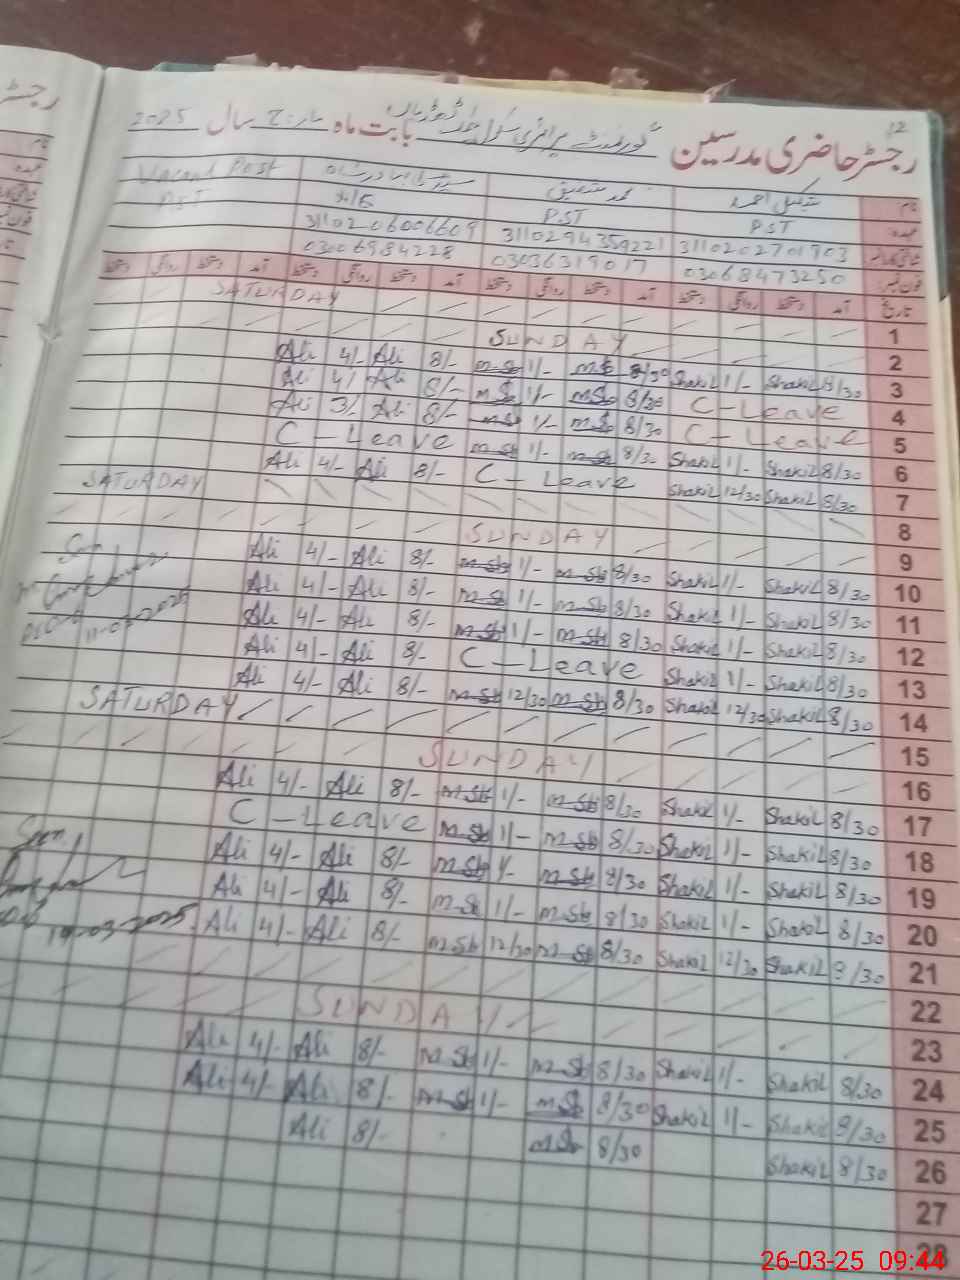 12
رجسٹر حاضری مدرسین گورنمنٹ پرائمری سکول بابت ماہ مارچ سال 2025
نام شکیل احمد محمد صدیق Vacant Post
عہدہ PST PST PST
3110202701903 3110294359221 3110206006609
فون نمبر 03068473250 03036319017 03006984228
تاریخ آمد دستخط روانگی دستخط آمد دستخط روانگی دستخط آمد دستخط روانگی دستخط آمد دستخط روانگی دستخط
1 SATURDAY
2 SUNDAY
3 8/30 Shakil 1/- Shakil 8/30 M.Sb 1/- M.Sb 8/- Ali 4/- Ali
4 C-Leave 8/30 M.Sb 1/- M.Sb 8/- Ali 4/- Ali
5 C-Leave 8/30 M.Sb 1/- M.Sb 8/- Ali 3/- Ali
6 8/30 Shakil 1/- Shakil 8/30 M.Sb 1/- M.Sb C-Leave
7 8/30 Shakil 12/30 Shakil C-Leave 8/- Ali 4/- Ali
8 SATURDAY
9 SUNDAY
10 8/30 Shakil 1/- Shakil 8/30 M.Sb 1/- M.Sb 8/- Ali 4/- Ali
11 8/30 Shakil 1/- Shakil 8/30 M.Sb 1/- M.Sb 8/- Ali 4/- Ali
12 8/30 Shakil 1/- Shakil 8/30 M.Sb 1/- M.Sb 8/- Ali 4/- Ali
13 8/30 Shakil 1/- Shakil C-Leave 8/- Ali 4/- Ali
14 8/30 Shakil 12/30 Shakil 8/30 M.Sb 12/30 M.Sb 8/- Ali 4/- Ali
15 SATURDAY
16 SUNDAY
17 8/30 Shakil 1/- Shakil 8/30 M.Sb 1/- M.Sb 8/- Ali 4/- Ali
18 8/30 Shakil 1/- Shakil 8/30 M.Sb 1/- M.Sb C-Leave
19 8/30 Shakil 1/- Shakil 8/30 M.Sb 1/- M.Sb 8/- Ali 4/- Ali
20 8/30 Shakil 1/- Shakil 8/30 M.Sb 1/- M.Sb 8/- Ali 4/- Ali
19-03-2025
21 8/30 Shakil 12/30 Shakil 8/30 M.Sb 12/30 M.Sb 8/- Ali 4/- Ali
22
23 SUNDAY
24 8/30 Shakil 1/- Shakil 8/30 M.Sb 1/- M.Sb 8/- Ali 4/- Ali
25 8/30 Shakil 1/- Shakil 8/30 M.Sb 1/- M.Sb 8/- Ali 4/- Ali
26 8/30 Shakil 8/30 M.Sb 8/- Ali
27
28
26-03-25 09:44